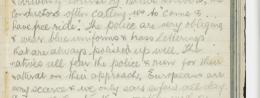 conductors often calling us to "come &
have free ride". The police are very obliging
& wear blue uniforms & brass letterings
that are always polished up well. The
natives all fear the police & run for their
on their approach. Europeans are
very scarce & we only saw all day